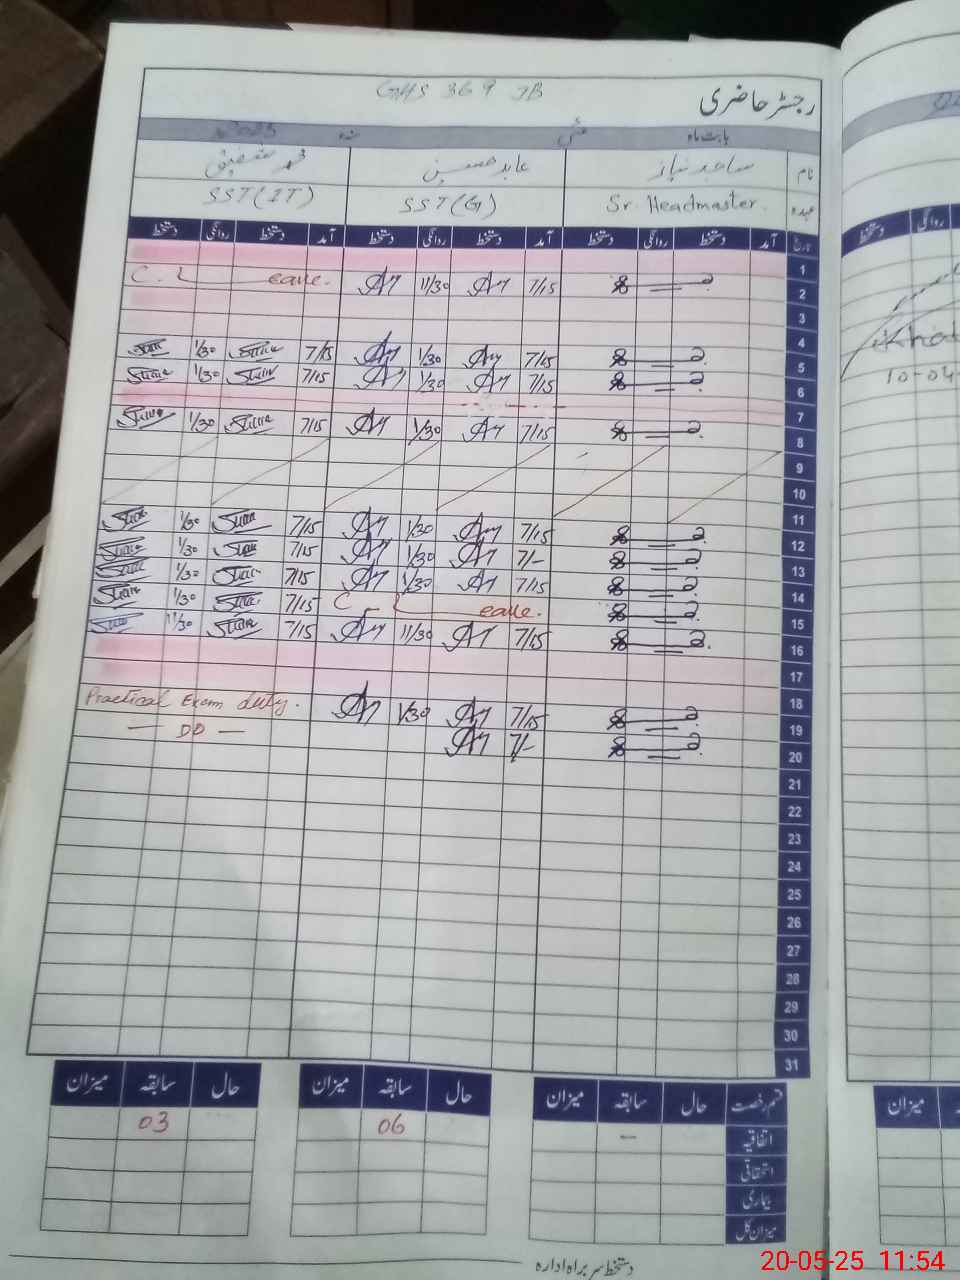 GHS 369 JB
رجسٹر حاضری
بابت ماہ مئی سنہ 2025
نام ساجد نیاز عابد حسین محمد شفیق
عہدہ Sr. Headmaster. SST(G) SST(IT)
تاریخ آمد دستخط روانگی دستخط آمد دستخط روانگی دستخط آمد دستخط روانگی دستخط
1
C. Leave. 11/30 7/15 2
3
4
1/30 7/15 1/30 7/15 5
1/30 7/15 1/30 7/15 6
7
1/30 7/15 1/30 7/15 8
9
10
11
1/30 7/15 1/30 7/15 12
1/30 7/15 1/30 7/- 13
1/30 7/15 1/30 7/15 14
1/30 7/15 C. Leave. 15
11/30 7/15 11/30 7/15 16
17
18
Practical Exam duty. 1/30 7/15 19
— DO — 7/- 20
21
22
23
24
25
26
27
28
29
30
31
قسم رخصت حال سابقہ میزان حال سابقہ میزان حال سابقہ میزان
اتفاقیہ – 06 03
استحقاقی
بیماری
میزان کل
دستخط سربراہ ادارہ
دستخط روانگی
10-04-
میزان
20-05-25 11:54